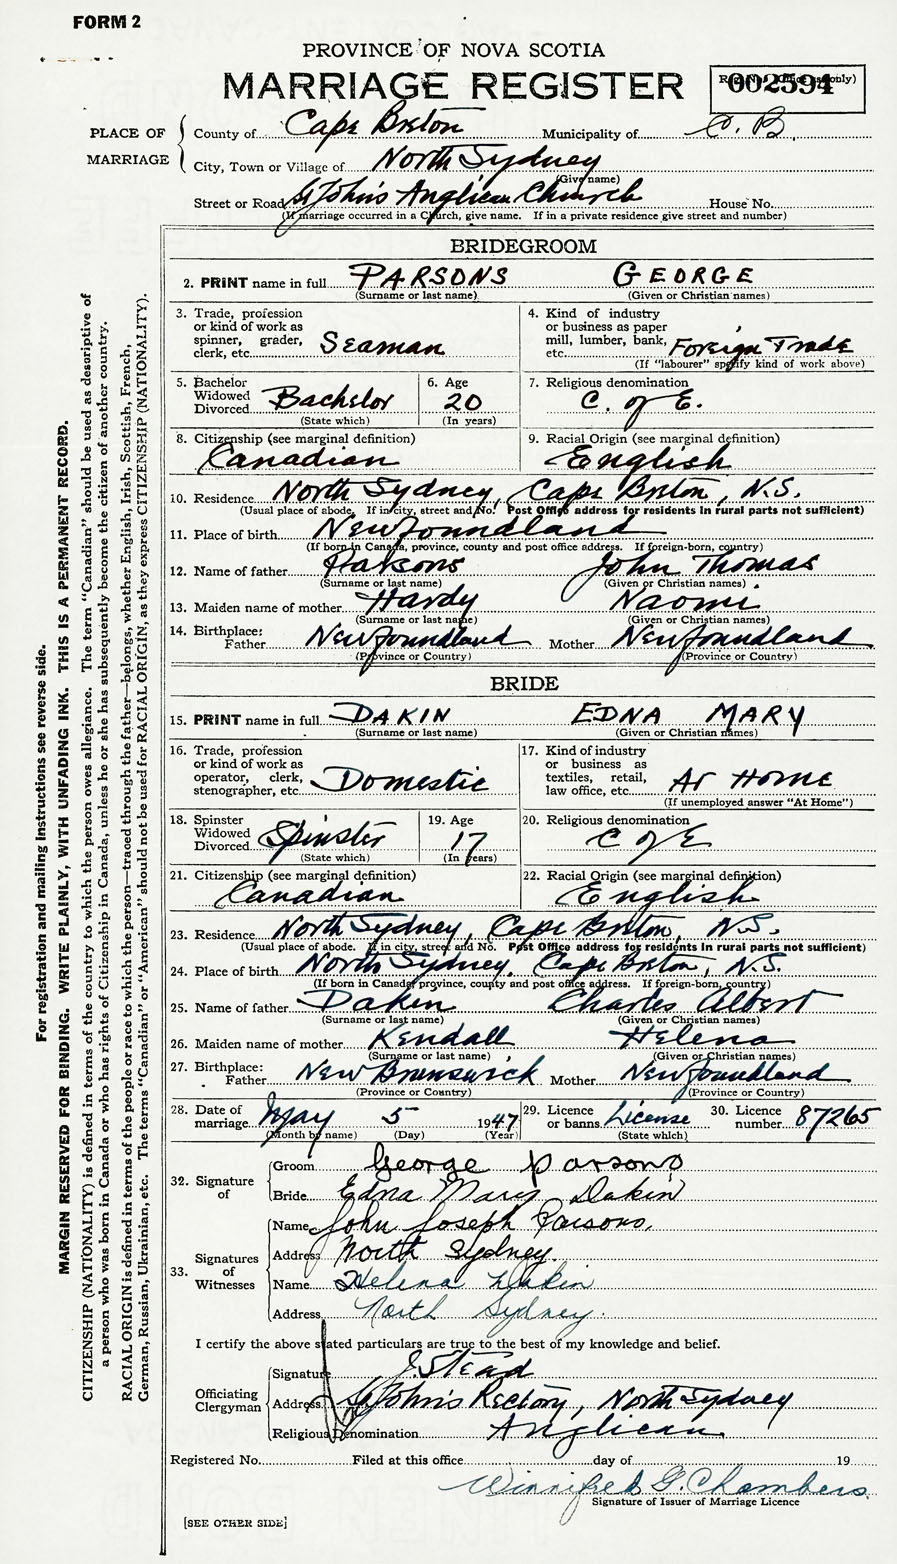 FORM 2
PROVINCE OF NOVA SCOTIA
MARRIAGE REGISTER
002594
PLACE OF MARRIAGE
County of Cape Breton Municipality of C. B.
City, Town or Village of North Sydney
(Give name)
Street or Road St John's Anglican Church House No.
(If marriage occurred in a Church, give name. If in a private residence give street and number)
BRIDEGROOM
2. PRINT name in full PARSONS GEORGE
(Surname or last name) (Given or Christian names)
3. Trade, profession or kind of work as spinner, grader, clerk, etc. Seaman
4. Kind of industry or business as paper mill, lumber, bank, etc. Foreign Trade
(If "labourer" specify kind of work above)
5. Bachelor Widowed Divorced Bachelor
(State which)
6. Age 20
(In years)
7. Religious denomination
C. of E.
8. Citizenship (see marginal definition)
Canadian
9. Racial Origin (see marginal definition)
English
10. Residence North Sydney, Cape Breton, N.S.
(Usual place of abode. If in city, street and No. Post Office address for residents in rural parts not sufficient)
11. Place of birth Newfoundland
(If born in Canada, province, county and post office address. If foreign-born, country)
12. Name of father Parsons John Thomas
(Surname or last name) (Given or Christian names)
13. Maiden name of mother Hardy Naomi
(Surname or last name) (Given or Christian names)
14. Birthplace: Father Newfoundland Mother Newfoundland
(Province or Country) (Province or Country)
BRIDE
15. PRINT name in full DAKIN EDNA MARY
(Surname or last name) (Given or Christian names)
16. Trade, profession or kind of work as operator, clerk, stenographer, etc Domestic
17. Kind of industry or business as textiles, retail, law office, etc. At Home
(If unemployed answer "At Home")
18. Spinster Widowed Divorced Spinster
(State which)
19. Age 17
(In years)
20. Religious denomination
C of E
21. Citizenship (see marginal definition)
Canadian
22. Racial Origin (see marginal definition)
English
23. Residence North Sydney, Cape Breton, N.S.
(Usual place of abode. If in city, street and No. Post Office address for residents in rural parts not sufficient)
24. Place of birth North Sydney, Cape Breton, N.S.
(If born in Canada province, county and post office address. If foreign-born, country)
25. Name of father Dakin Charles Albert
(Surname or last name) (Given or Christian names)
26. Maiden name of mother Kendall Helena
(Surname or last name) (Given or Christian names)
27. Birthplace: Father New Brunswick Mother Newfoundland
(Province or Country) (Province or Country)
28. Date of marriage May 5 1947
(Month by name) (Day) (Year)
29. Licence or banns License
(State which)
30. Licence number 87265
32. Signature of
Groom George Parsons
Bride Edna Mary Dakin
33. Signatures of Witnesses
Name John Joseph Parsons
Address North Sydney
Name Helena Dakin
Address North Sydney.
I certify the above stated particulars are true to the best of my knowledge and belief.
Officiating Clergyman
Signature J. Stead
Address St John's Rectory, North Sydney
Religious Denomination Anglican
Registered No. Filed at this office day of 19
Winnifred G. Chambers
Signature of Issuer of Marriage Licence
[SEE OTHER SIDE]
For registration and mailing instructions see reverse side.
MARGIN RESERVED FOR BINDING. WRITE PLAINLY, WITH UNFADING INK. THIS IS A PERMANENT RECORD.
CITIZENSHIP (NATIONALITY) is defined in terms of the country to which the person owes allegiance. The term "Canadian" should be used as descriptive of
a person who was born in Canada or who has rights of Citizenship in Canada, unless he or she has subsequently become the citizen of another country.
RACIAL ORIGIN is defined in terms of the people or race to which the person—traced through the father—belongs, whether English, Irish, Scottish, French,
German, Russian, Ukrainian, etc. The terms "Canadian" or "American" should not be used for RACIAL ORIGIN, as they express CITIZENSHIP (NATIONALITY).